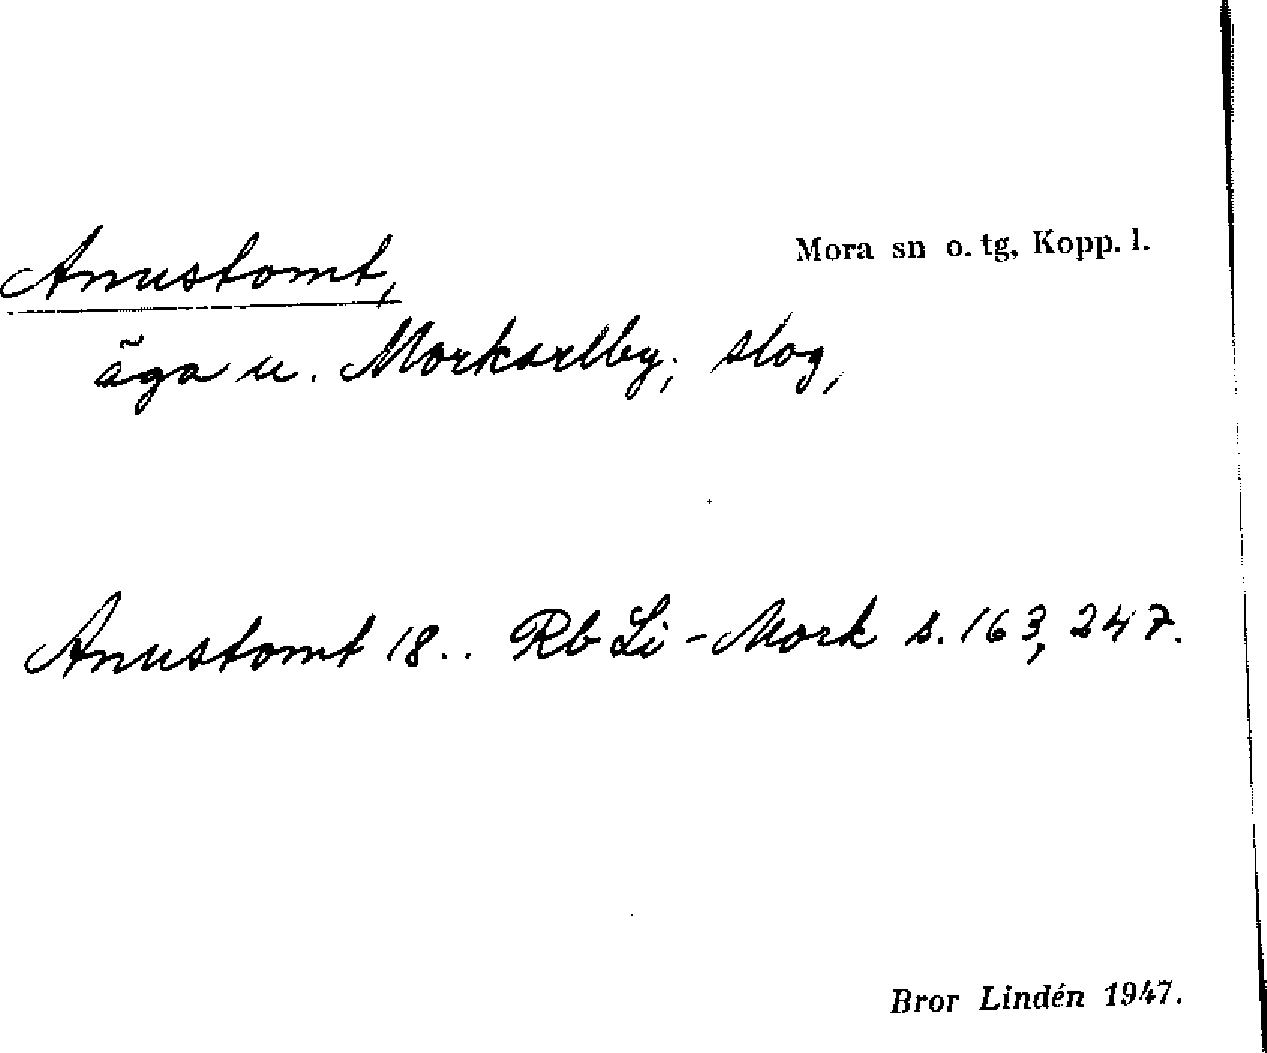 Mora sn o. tg, Kopp. l.
Anustomt,
äga u. Morkarlby; slog,
Anustomt 18.. Rb Li-Mork s. 163, 247.
Bror Lindén 1947.